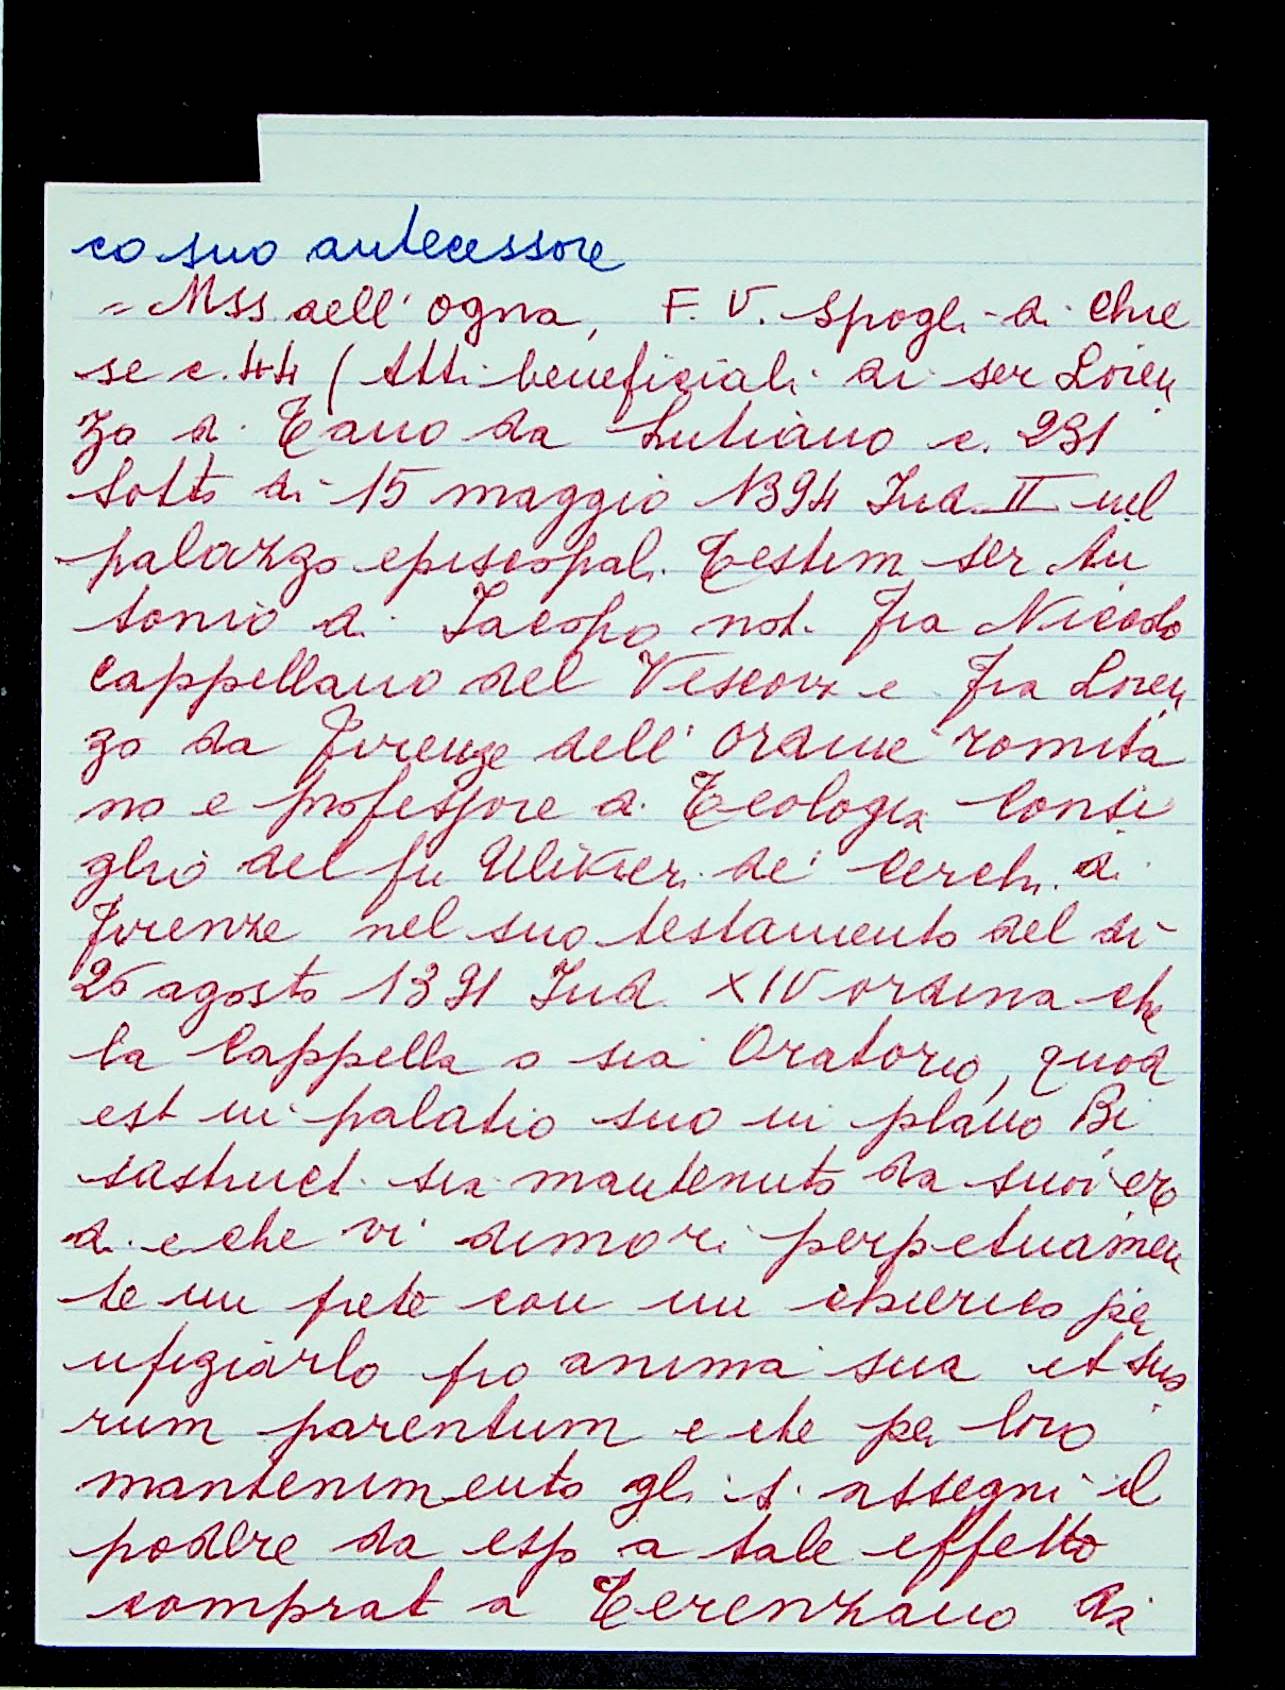 co suo antecessore
= Mss. dell'Ogna, F. V. Spogli di Chie
se c. 44 (Atti beneficiali di ser Loren
zo di Tano da Lutiano c. 231
sotto dì 15 maggio 1394 Ind. II nel
palazzo episcopal. Testim ser An
tonio di Jacopo not. fra Nicolo
cappellano del Vescovo e fra Loren
zo da Firenze dell'ordine romita
no e professore di Teologia Consi
glio del fu Ulivieri de' Cerchi di
Firenze nel suo testamento del dì
26 agosto 1391 Ind. XIV ordina che
la Cappella o sia Oratorio, quod
est in palatio suo in plano Bi
sastruct. sia mantenuto da suoi ere
di e che vi dimori perpetuamen
te un prete con un chierico per
ufiziarlo pro anima sua et suo
rum parentum e che per loro
mantenimento gli si assegni il
podere da esso a tale effetto
comprat a Terenzano da